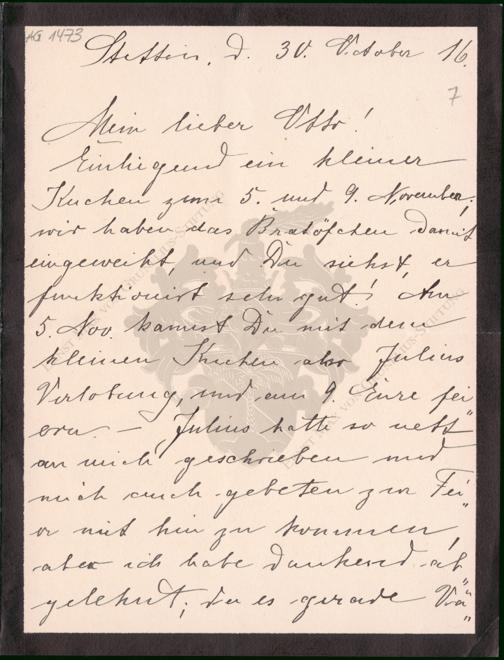 AG 1473
Stettin, d. 30. October 16.
7
Mein lieber Otto!
Einliegend ein kleiner
Kuchen zum 5. und 9. November,
wir haben das Bratöfchen damit
eingeweiht, und Du siehst, er
funktionirt sehr gut! Am
5. Nov. kannst Du mit dem
kleinen Kuchen also Julius
Verlobung, und am 9. Eure fei
ern. – Julius hatte so nett
an mich geschrieben und
mich auch gebeten zur Fei„
er mit hin zu kommen,
aber ich habe dankend ab„
gelehnt, da es gerade Va„